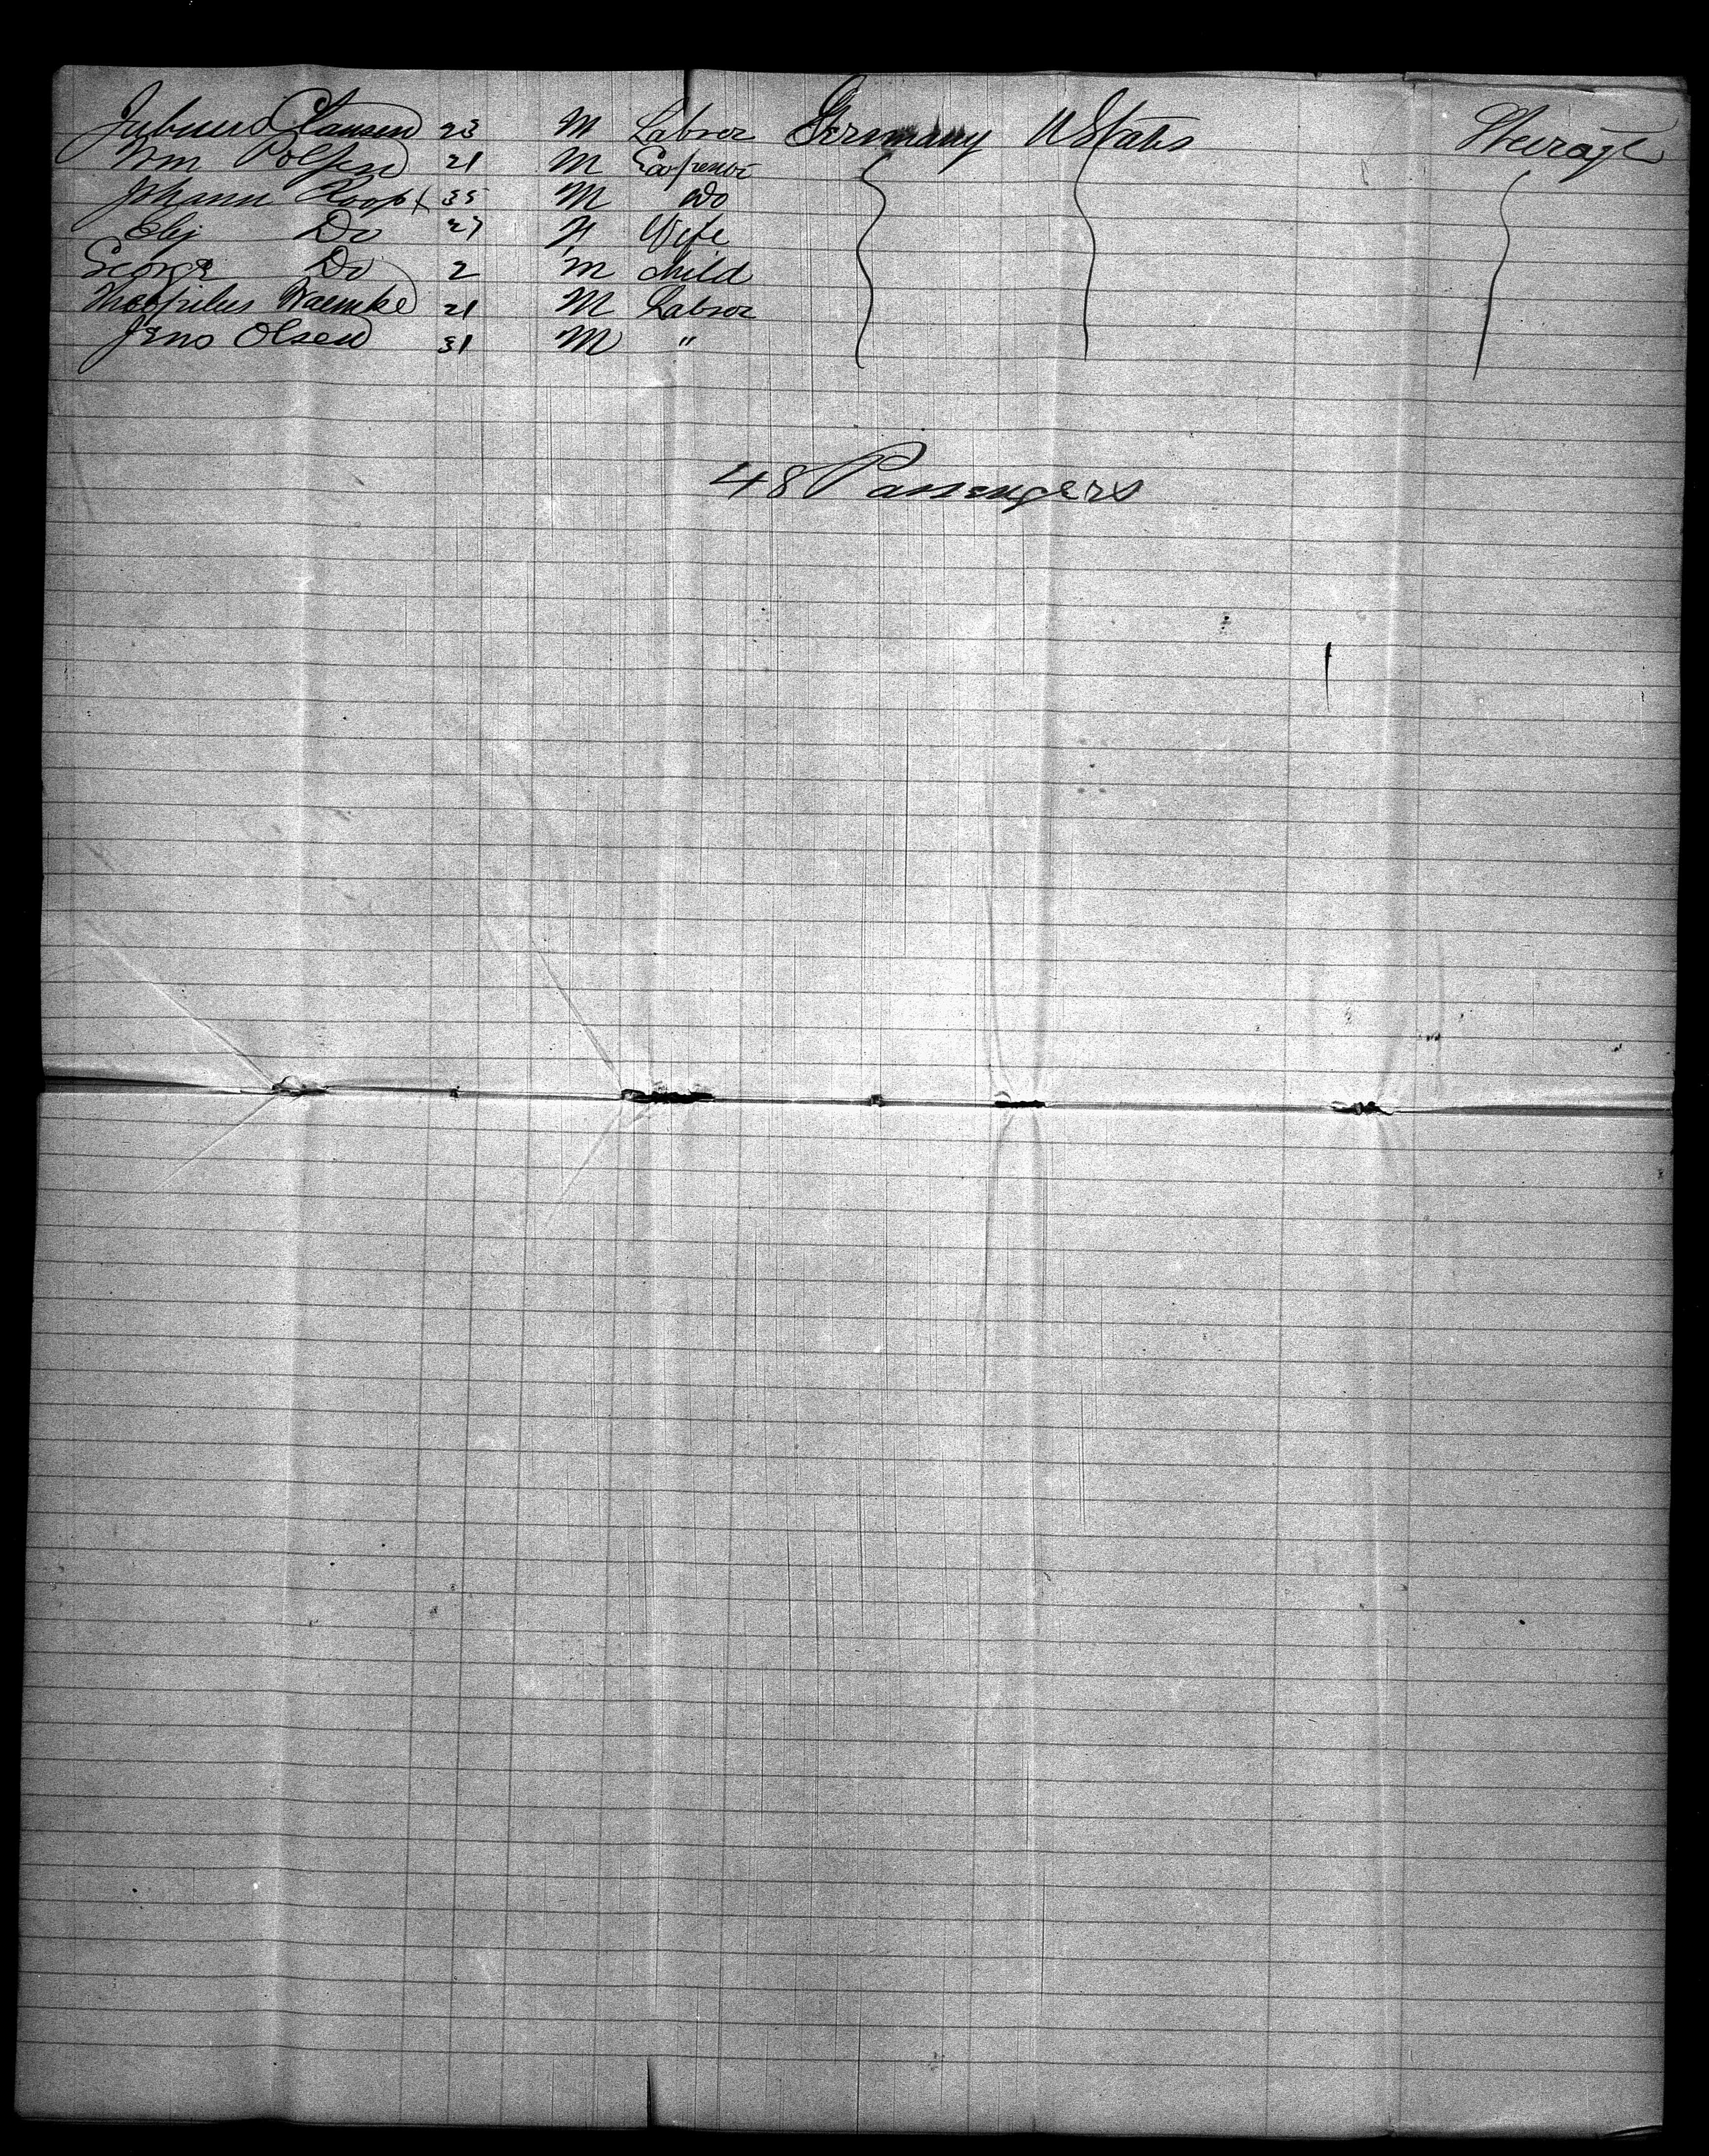 Clausen 23 M Labror Germany U States Steerage
Wm Polsen 21 M
Johann Koopf 35 M Do
Do 27 F Wife
George Do 2 M child
Waemke 21 M Labror
Jens Olsen 31 M "
48 Passengers